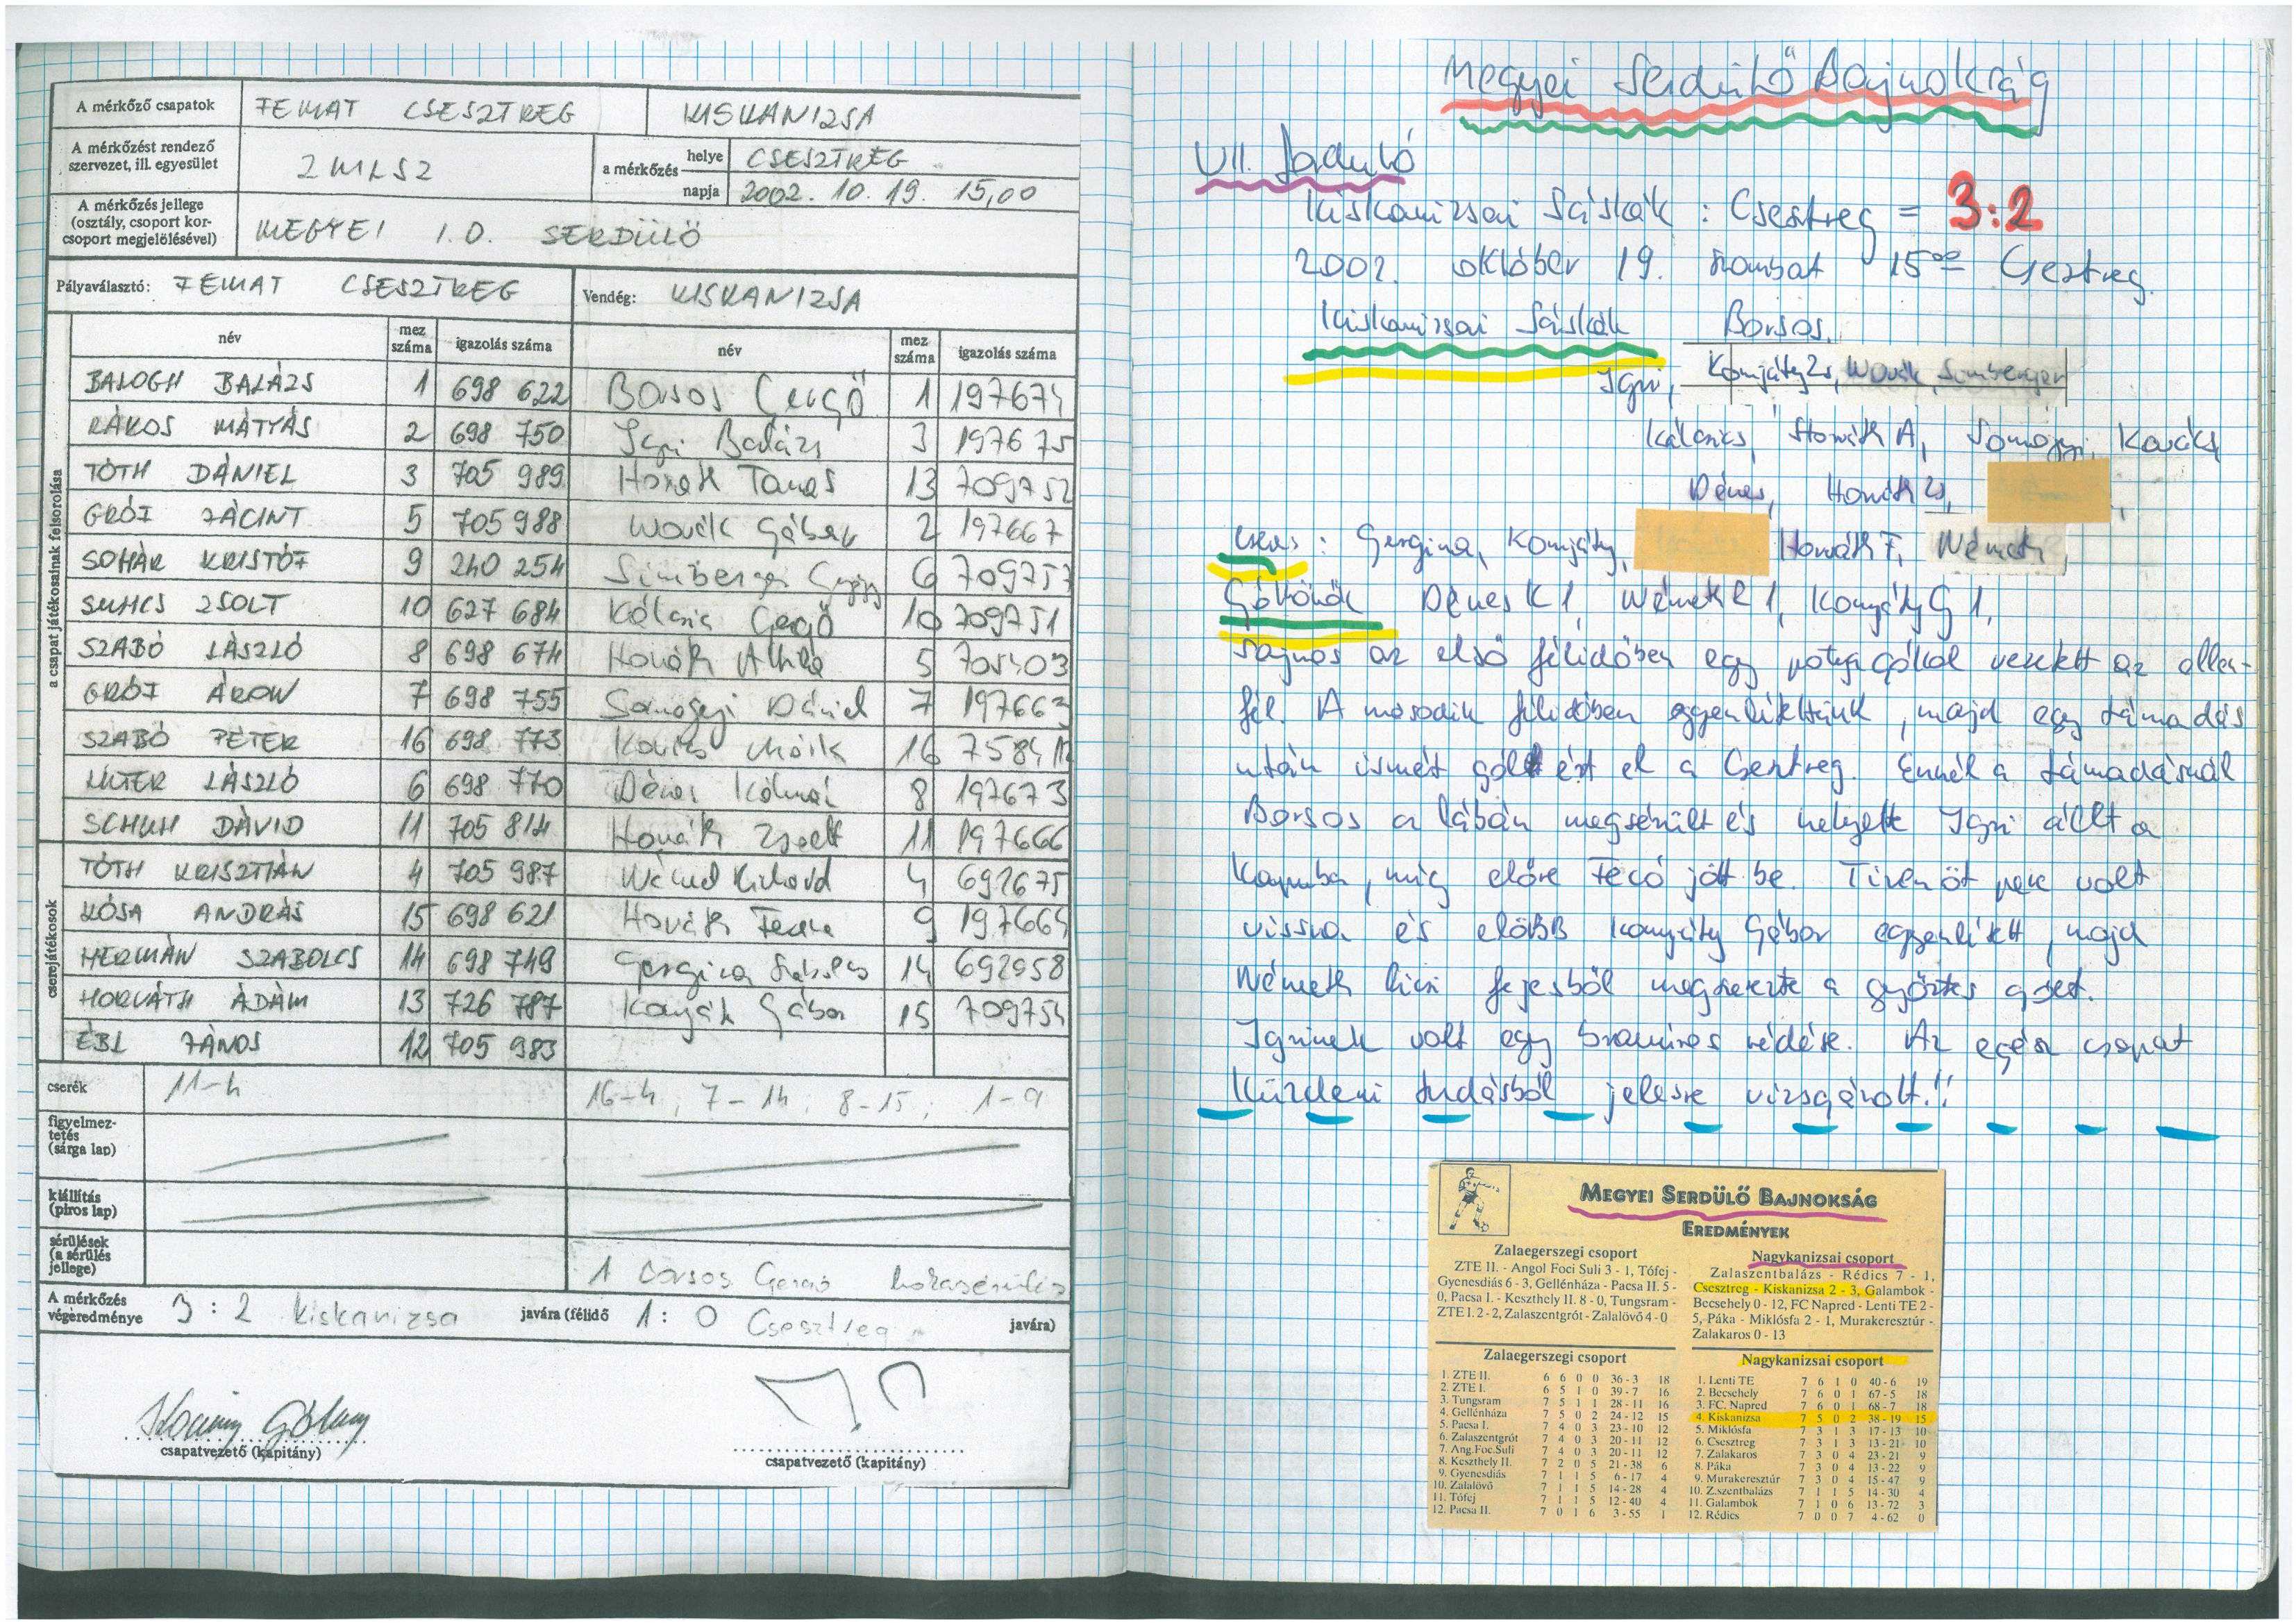 A mérkőző csapatok FEMAT CSESZTREG KISKANIZSA
A mérkőzést rendező szervezet, ill. egyesület ZMLSZ a mérkőzés helye CSESZTREG
napja 2002. 10. 19. 15,00
A mérkőzés jellege (osztály, csoport korcsoport megjelölésével) MEGYEI I.O. SERDÜLŐ
Pályaválasztó: FEMAT CSESZTREG Vendég: KISKANIZSA
név mez száma igazolás száma név mez száma igazolás száma
a csapat játékosainak felsorolása
BALOGH BALÁZS 1 698 622 Borsos Gergő 1 197674
RÁKOS MÁTYÁS 2 698 750 Igri Balázs 3 197675
TÓTH DÁNIEL 3 705 989 Horváth Tamás 13 709752
GRÓF JÁCINT 5 705 988 Novák Gábor 2 197667
SOHÁR KRISTÓF 9 240 254 Simberger 6 709757
SUHCS ZSOLT 10 627 684 Kálcsics Gergő 10 709751
SZABÓ LÁSZLÓ 8 698 674 Horváth Attila 5 705403
GRÓF ÁRON 7 698 755 Somogyi Dániel 7 197663
SZABÓ PÉTER 16 698 773 Kovács Márk 16
LITER LÁSZLÓ 6 698 770 Dénes Kálmán 8 197673
SCHUH DÁVID 11 705 814 Horváth Zsolt 11 197666
cserejátékosok
TÓTH KRISZTIÁN 4 705 987 Németh Richard 4 692675
KÓSA ANDRÁS 15 698 621 Horváth Ferenc 9 197664
HERMÁN SZABOLCS 14 698 749 Gergina Szabolcs 14 692958
HORVÁTH ÁDÁM 13 726 787 Komjáti Gábor 15 709754
ÉBL JÁNOS 12 705 983
cserék 11-4 16-4; 7-14; 8-15; 1-9
figyelmeztetés (sárga lap)
kiállítás (piros lap)
sérülések (a sérülés jellege) 1 Borsos Gergő
A mérkőzés végeredménye 3:2 Kiskanizsa javára (félidő 1:0 Csesztreg javára)
csapatvezető (kapitány) csapatvezető (kapitány)
Megyei Serdülő Bajnokság
VII. forduló
Kiskanizsai Sáskák : Csesztreg = 3:2
2002. október 19. szombat 15⁰⁰ Csesztreg.
Kiskanizsai Sáskák Borsos,
Igri, Komjáty Zs, Novák, Simberger
Kálcsics, Horváth A, Somogyi, Kovács,
Dénes, Horváth Zs,
Csere: Gergina, Komjáty, Horváth F, Németh,
Góllövők Dénes K 1, Németh R 1, Komjáty G 1,
Sajnos az első félidőben egy potya góllal vezetett az ellen-
fél. A második félidőben egyenlítettünk, majd egy támadás
után ismét gólt ért el a Csesztreg. Ennél a támadásnál
Borsos a lábán megsérült és helyette Igri állt a
kapuba, míg előre Fecó jött be. Tizenöt perc volt
vissza és előbb Komjáty Gábor egyenlített, majd
Németh Ricsi fejesből megszerezte a győztes gólt.
Igrinek volt egy bravúros védése. Az egész csapat
küzdeni tudásból jelesre vizsgázott!!
MEGYEI SERDÜLŐ BAJNOKSÁG
EREDMÉNYEK
Zalaegerszegi csoport
ZTE II. - Angol Foci Suli 3 - 1, Tófej -
Gyenesdiás 6 - 3, Gellénháza - Pacsa II. 5 -
0, Pacsa I. - Keszthely II. 8 - 0, Tungsram -
ZTE I. 2 - 2, Zalaszentgrót - Zalalövő 4 - 0
Nagykanizsai csoport
Zalaszentbalázs - Rédics 7 - 1,
Csesztreg - Kiskanizsa 2 - 3, Galambok -
Becsehely 0 - 12, FC Napred - Lenti TE 2 -
5, Páka - Miklósfa 2 - 1, Murakeresztúr -
Zalakaros 0 - 13
Zalaegerszegi csoport
1. ZTE II. 6 6 0 0 36 - 3 18
2. ZTE I. 6 5 1 0 39 - 7 16
3. Tungsram 7 5 1 1 28 - 11 16
4. Gellénháza 7 5 0 2 24 - 12 15
5. Pacsa I. 7 4 0 3 23 - 10 12
6. Zalaszentgrót 7 4 0 3 20 - 11 12
7. Ang.Foc.Suli 7 4 0 3 20 - 11 12
8. Keszthely II. 7 2 0 5 21 - 38 6
9. Gyenesdiás 7 1 1 5 6 - 17 4
10. Zalalövő 7 1 1 5 14 - 28 4
11. Tófej 7 1 1 5 12 - 40 4
12. Pacsa II. 7 0 1 6 3 - 55 1
Nagykanizsai csoport
1. Lenti TE 7 6 1 0 40 - 6 19
2. Becsehely 7 6 0 1 67 - 5 18
3. FC. Napred 7 6 0 1 68 - 7 18
4. Kiskanizsa 7 5 0 2 38 - 19 15
5. Miklósfa 7 3 1 3 17 - 13 10
6. Csesztreg 7 3 1 3 13 - 21 10
7. Zalakaros 7 3 0 4 23 - 21 9
8. Páka 7 3 0 4 13 - 22 9
9. Murakeresztúr 7 3 0 4 15 - 47 9
10. Z.szentbalázs 7 1 1 5 14 - 30 4
11. Galambok 7 1 0 6 13 - 72 3
12. Rédics 7 0 0 7 4 - 62 0